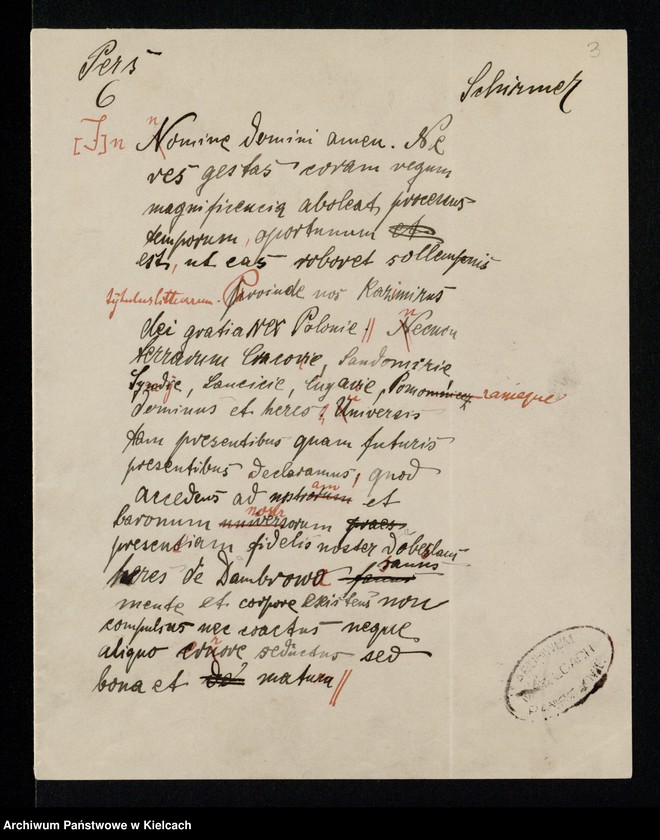 3
Pers
6
Schirmer
[I]n Nomine domini amen. Ne
res gestas coram regum
magnificencia aboleat processus
temporum, oportunum et
est, ut eas roboret sollempnis
tytulus litterarum. Proinde nos Kazimirus
dei gratia rex Polonie // Necnon
terrarum Cracovie, Sandomirie
Syradie, Lancicie, Cuyavie, Pomoranieque
dominus et heres. Universis
tam presentibus quam futuris
presentibus declaramus, quod
accedens ad nostram et
baronum nostrorum
presenciam fidelis noster Dobeslaus
heres de Dambrowa sanus
mente et corpore existens non
compulsus nec coactus neque
aliquo errore seductus sed
bona et de matura //
ARCHIWUM
W KIELCACH
Archiwum Państwowe w Kielcach